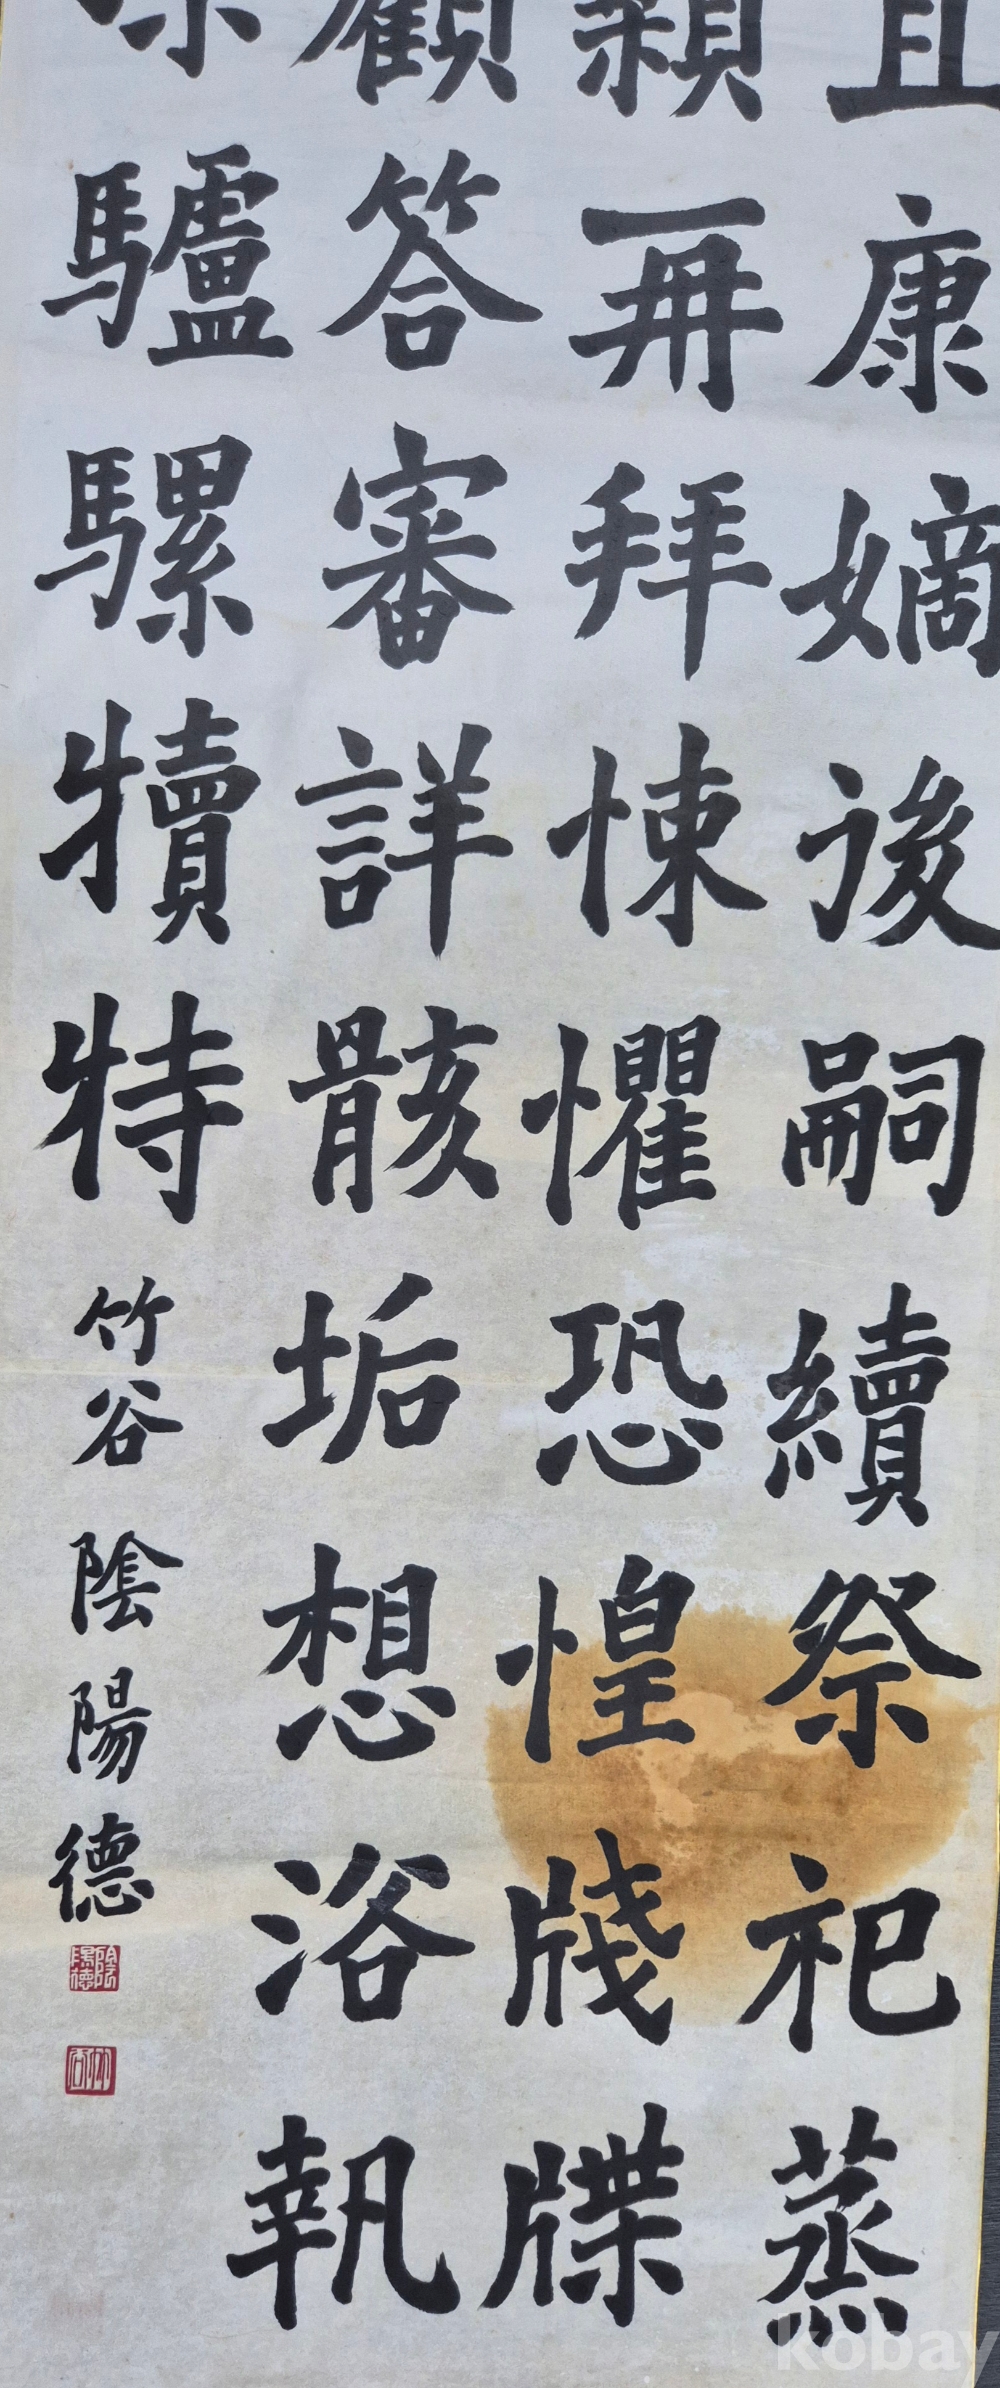 且康嫡後嗣續祭祀蒸
顙再拜悚懼恐惶牋牒
顧答審詳骸垢想浴執
驢騾犢特
竹谷 陰陽德
陰陽德
竹谷
kobay